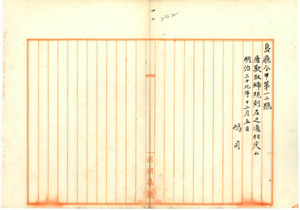 島廳令甲第一二號
屠獸取締規則左之通相定ム
明治二十九年十二月五日
島司